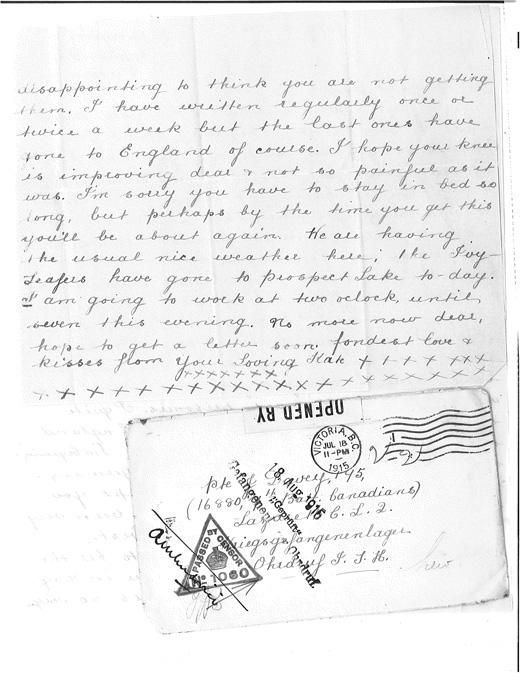 disappointing to think you are not getting
them. I have written regularly once or
twice a week but the last ones have
gone to England of course. I hope your knee
is improving dear & not so painful as it
was. I'm sorry you have to stay in bed so
long, but perhaps by the time you get this
you'll be about again. We are having
the usual nice weather here; the Ivy-
Leafers have gone to Prospect Lake to-day.
I am going to work at two oclock, until
seven this evening. No more now dear,
hope to get a letter soon. fondest love &
kisses from Your Loving Kate x x x x x x x
x x x x x x x
x x x x x x x x x x x x x x x x x
OPENED BY
VICTORIA, B.C.
JUL 18
11-PM
1915
Pte
(16880
Canadians)
18 Aug. 1915
C. L. 2.
Kriegsgefangenenlager
Ohrdruf I. T. H.
PASSED BY CENSOR
No 1060